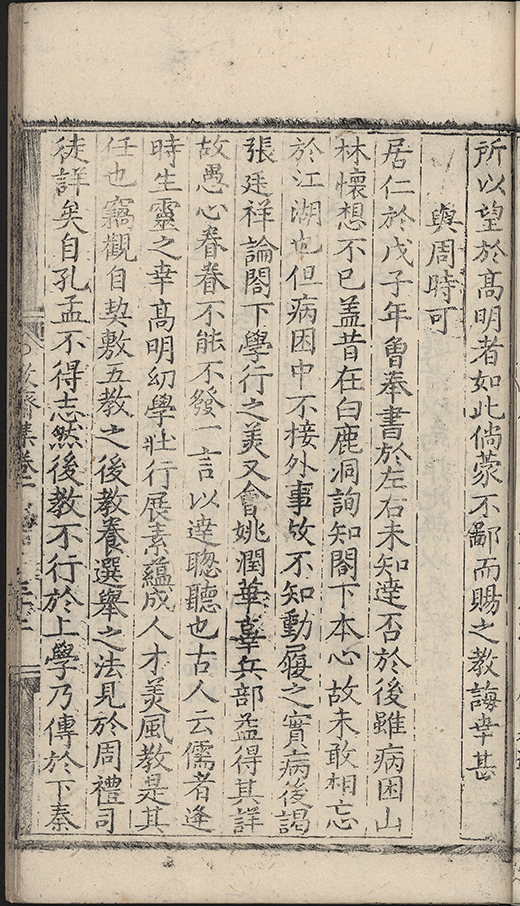 所以望於髙明者如此倘蒙不鄙而賜之教誨幸甚
與周時可
居仁於戊子年曾奉書於左右未知達否於後雖病困山
林懷想不已盖昔在白鹿洞詢知閣下本心故未敢相忘
於江湖也但病困中不接外事故不知動履之實病後謁
張廷祥論閣下學行之美又會姚潤華辜兵部益得其詳
故愚心眷眷不能不發一言以達聰聽也古人云儒者逢
時生靈之幸髙明幼學壯行展素蘊成人才美風教是其
任也竊觀自契敷五教之後教養選舉之法見於周禮司
徒詳矣自孔孟不得志然後教不行於上學乃傳於下秦
敬齋集卷二